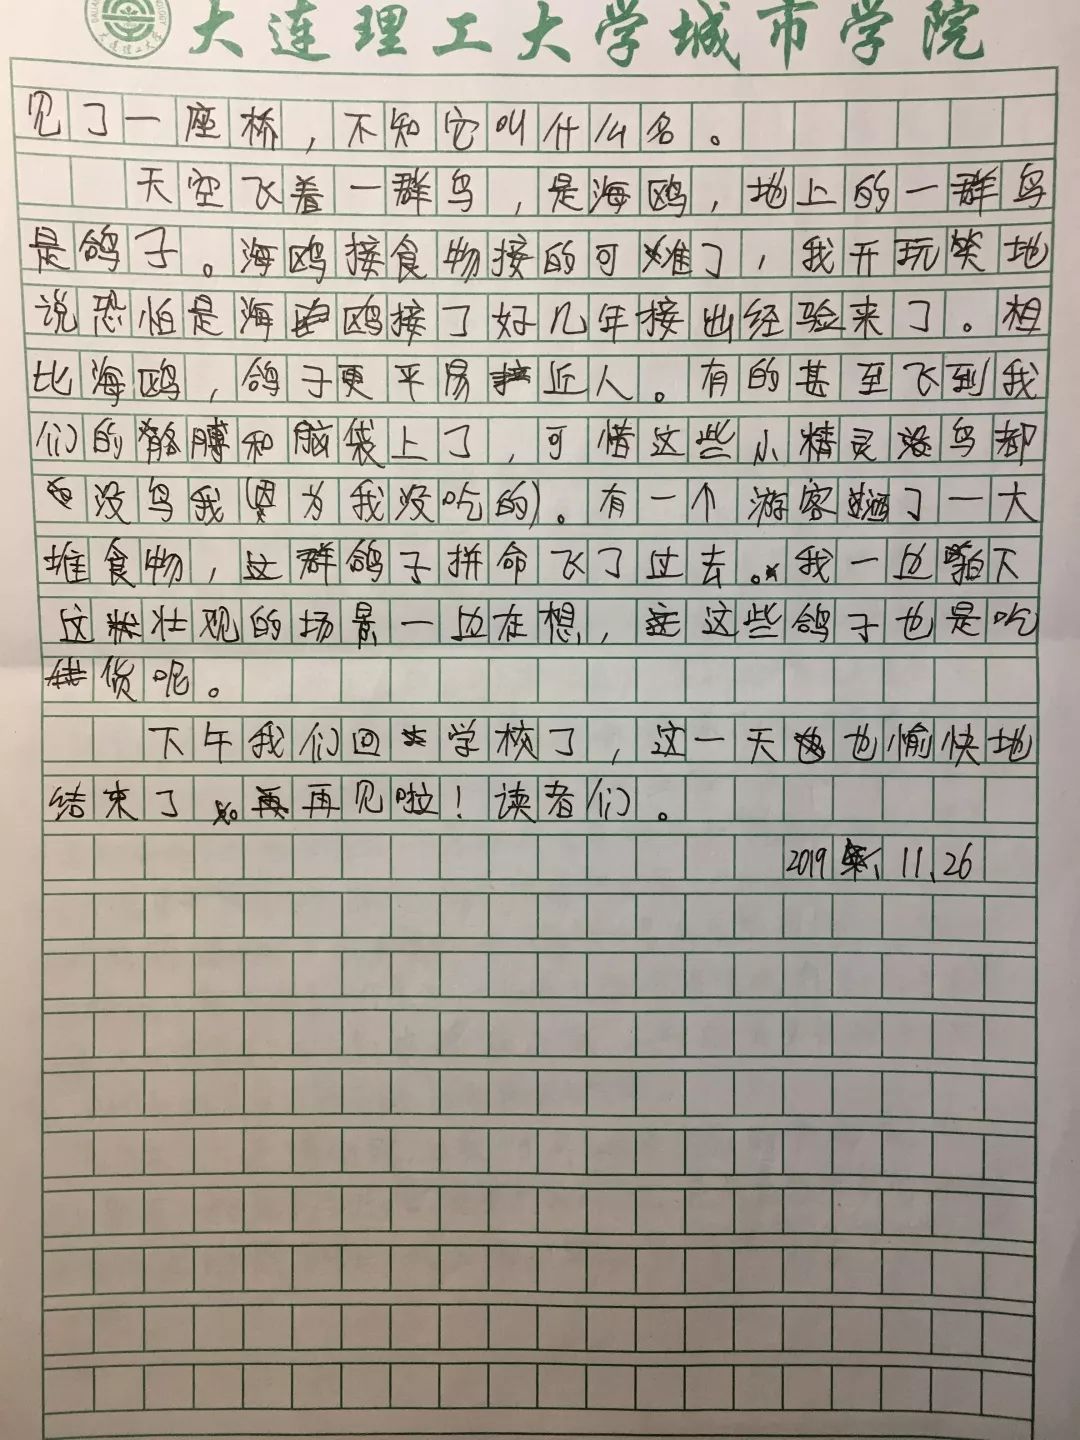 大连理工大学城市学院
见了一座桥，不知它叫什么名。
天空飞着一群鸟，是海鸥，地上的一群鸟
是鸽子。海鸥接食物接的可难了，我开玩笑地
说恐怕是海鸥接了好几年接出经验来了。相
比海鸥，鸽子更平易近人。有的甚至飞到我
们的胳膊和脑袋上了，可惜这些小精灵鸟都
没鸟我(因为我没吃的)。有一个游客洒了一大
堆食物，这群鸽子拼命飞了过去。我一边拍下
这壮观的场景一边在想，这些鸽子也是吃
货呢。
下午我们回学校了，这一天也愉快地
结束了 再见啦！读者们。
2019、11、26